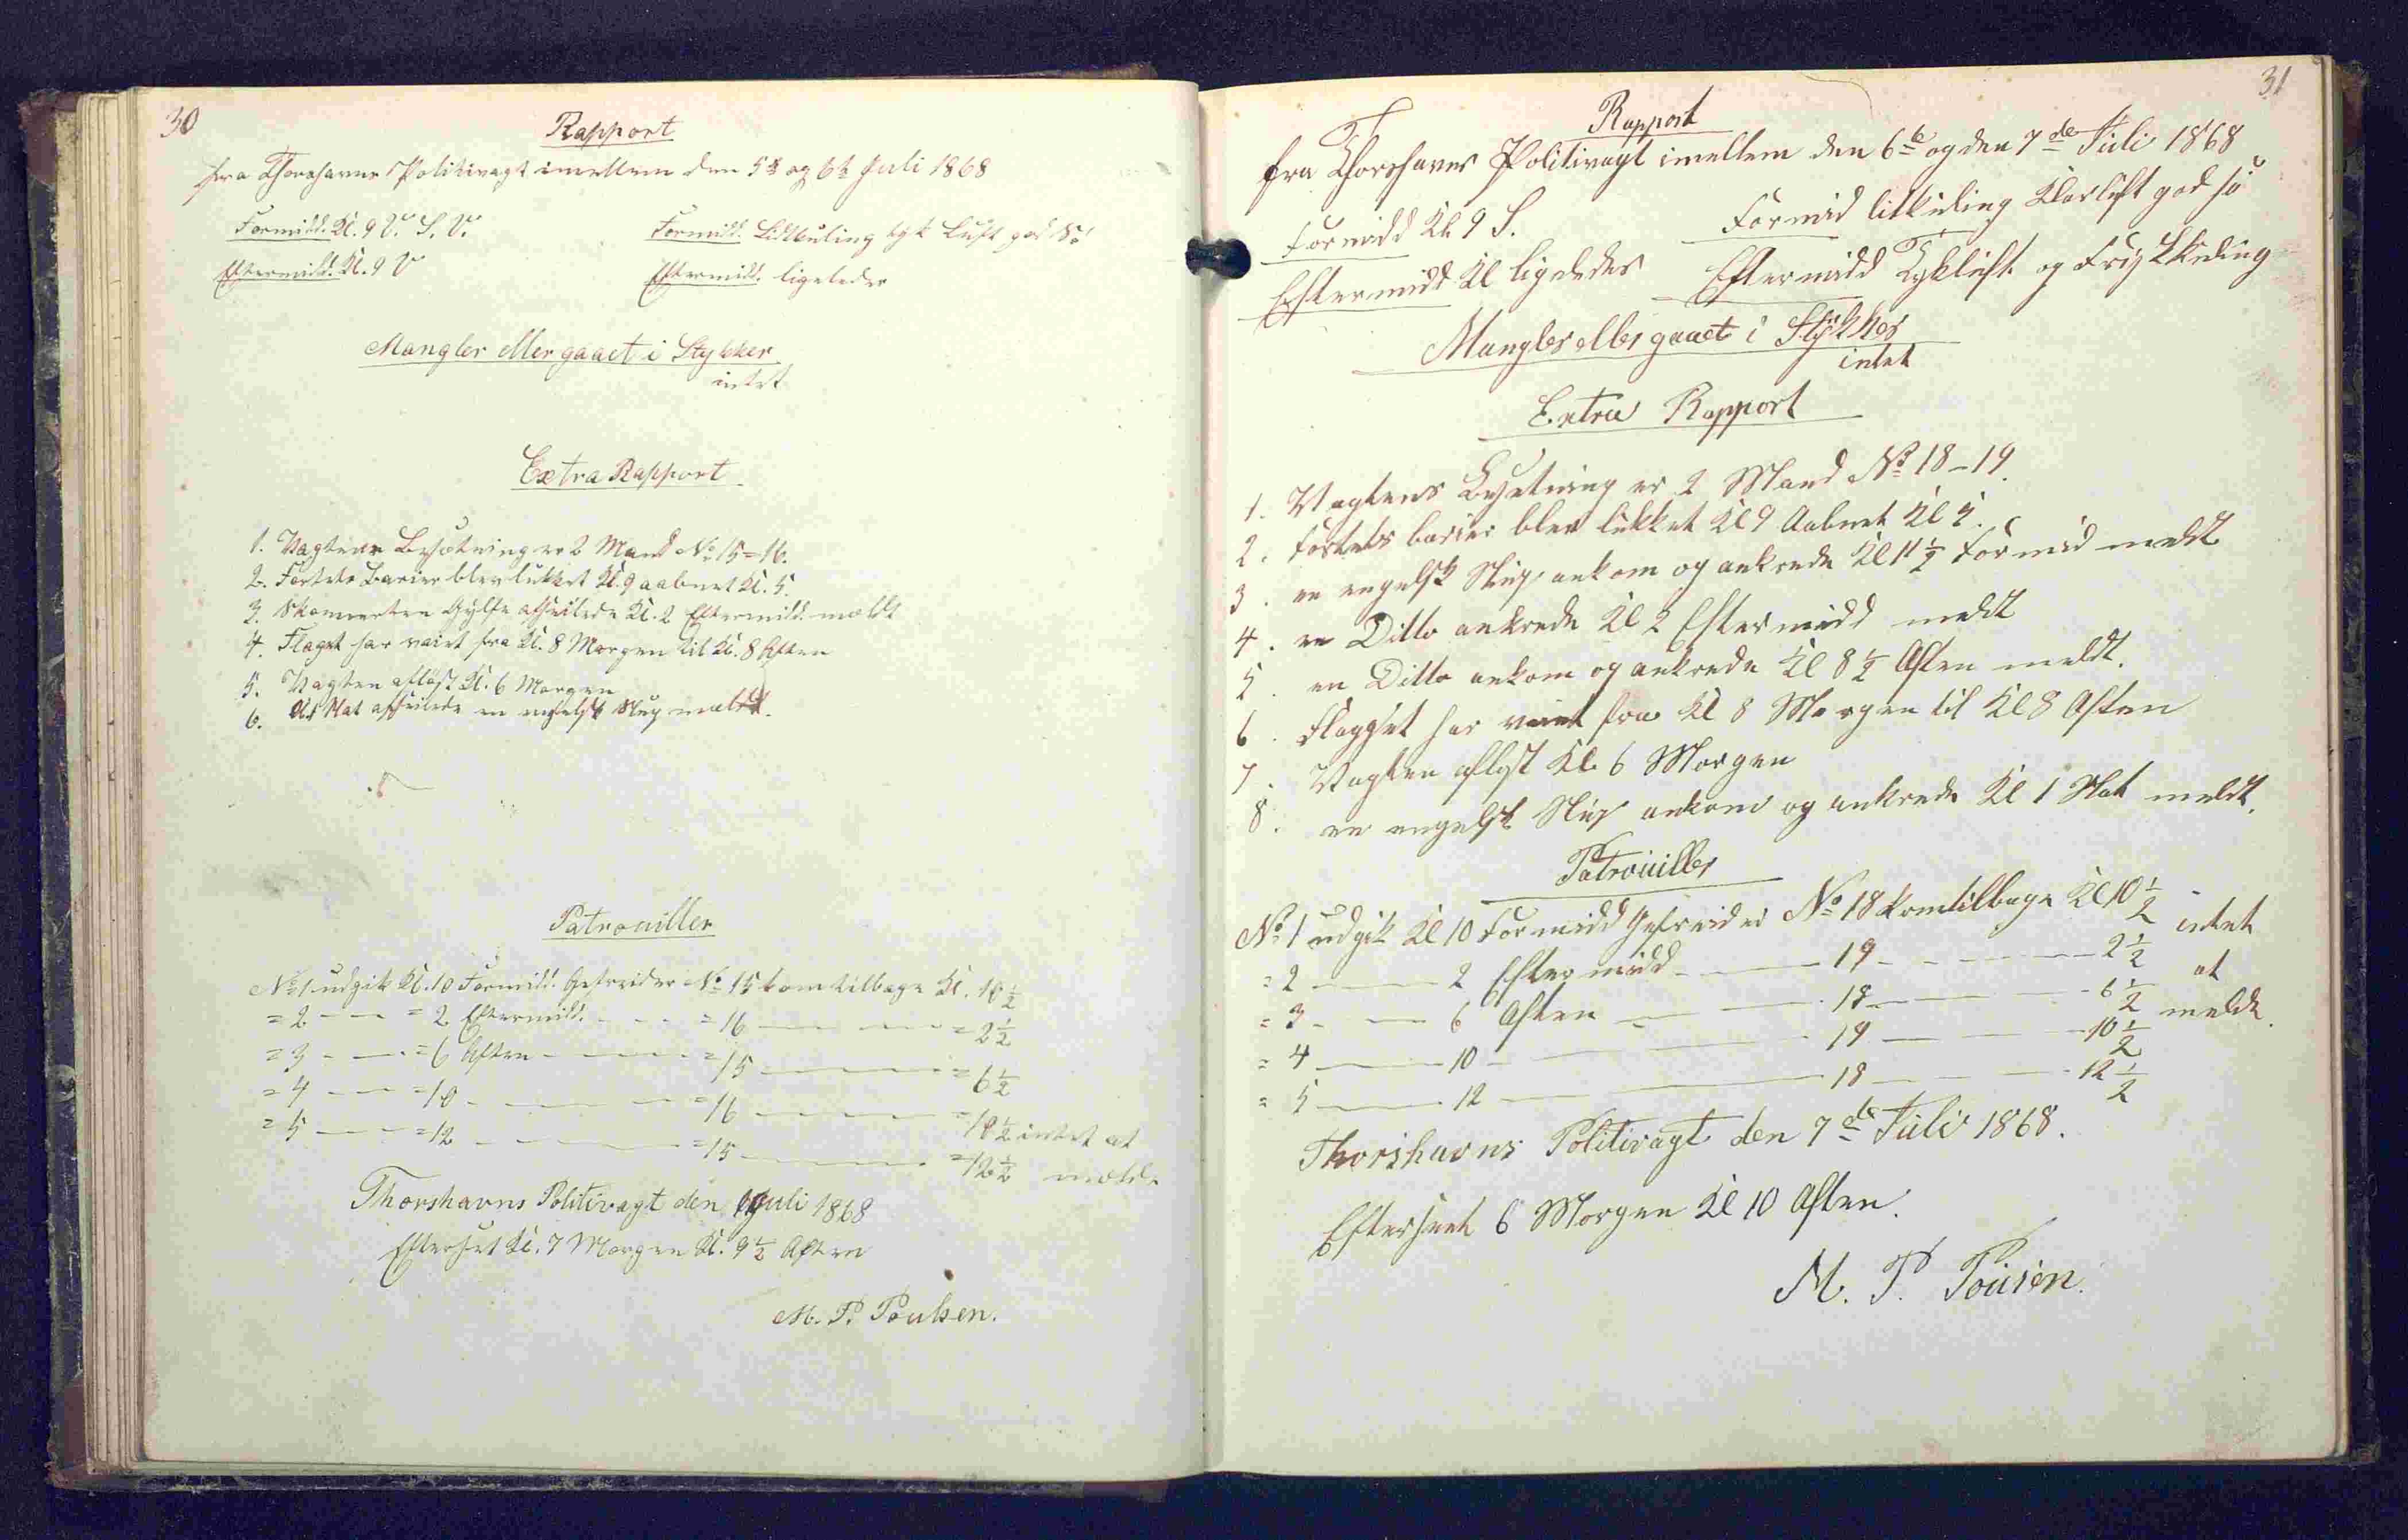 30
Rapport
fra Thorshavns Politivagt imellem den 5te og 6te Juli 1868
Formidd. Kl. 9 V. S. V. Formidd. Lidkuling tyk Luft god Sö
Eftermidd. Kl. 9 V Eftermidd. ligeledes
Mangler eller gaaet i Stykker
intet
Extra Rapport
1. Vagtens Besætning er 2 Mand No 15=16.
2. Fortets Barier blev lukket Kl. 9 aabnet Kl. 5.
3. Skonnerten Gylfe afseilede Kl. 2 Eftermidd. mældt
4. Flaget har vaiet fra Kl. 8 Morgen til Kl. 8 Aften
5. Vagten aflöst Kl. 6 Morgen
6. Nat afseilede en engelsk Slup mældt.
Patrouiller
No 1 udgik Kl. 10 Formidd. Gefreider No 15 kom tilbage Kl. 10 1/2
= 2 — — = 2 Eftermidd. — — = 16 — — — = 2 1/2
= 3 — — = 6 Aften — — = 15 — — — = 6 1/2
= 4 — — = 10 — — — = 16 — — — = 10 1/2 intet at
= 5 — — = 12 — — — = 15 — — — = 12 1/2 mælde
Thorshavns Politivagt den 6 Juli 1868
Efterset Kl. 7 Morgen Kl. 9 1/2 Aften
M. P. Poulsen.
31
Rapport
fra Thorshavns Politivagt imellem den 6te og den 7de Juli 1868
Formidd Kl. 9 S. Formid litkuling Klarluft god sö
Eftermidd Kl ligeledes Eftermidd Tykluft og Friskkuling
Mangler eller gaaet i Stykker
intet
Extra Rapport
1. Vagtens Besetning er 2 Mand No 18-19.
2. Fortets barier blev lukket Kl 9 Aabnet Kl 5.
3. en engelsk Slup ankom og ankrede Kl 11 1/2 Formid meldt
4. en Ditto ankrede Kl 2 Eftermidd meldt
5. en Ditto ankom og ankrede Kl 8 1/2 Aften meldt.
6. Flagget har vaiet fra Kl 8 Morgen til Kl 8 Aften
7. Vagten aflöst Kl. 6 Morgen
8. en engelsk Slup ankom og ankrede Kl 1 Nat meldt.
Patrouiller
No 1 udgik Kl 10 Formidd Gefreider No 18 kom tilbage Kl 10 1/2 intet
= 2 — — 2 Eftermidd — — 19 — — — 2 1/2 at
= 3 — — 6 Aften — — 18 — — — 6 1/2 melde.
= 4 — — 10 — — — 19 — — — 10 1/2
= 5 — — 12 — — — 18 — — — 12 1/2
Thorshavns Politivagt den 7de Juli 1868.
Efterseet 6 Morgen Kl 10 Aften.
M. P. Pousen.